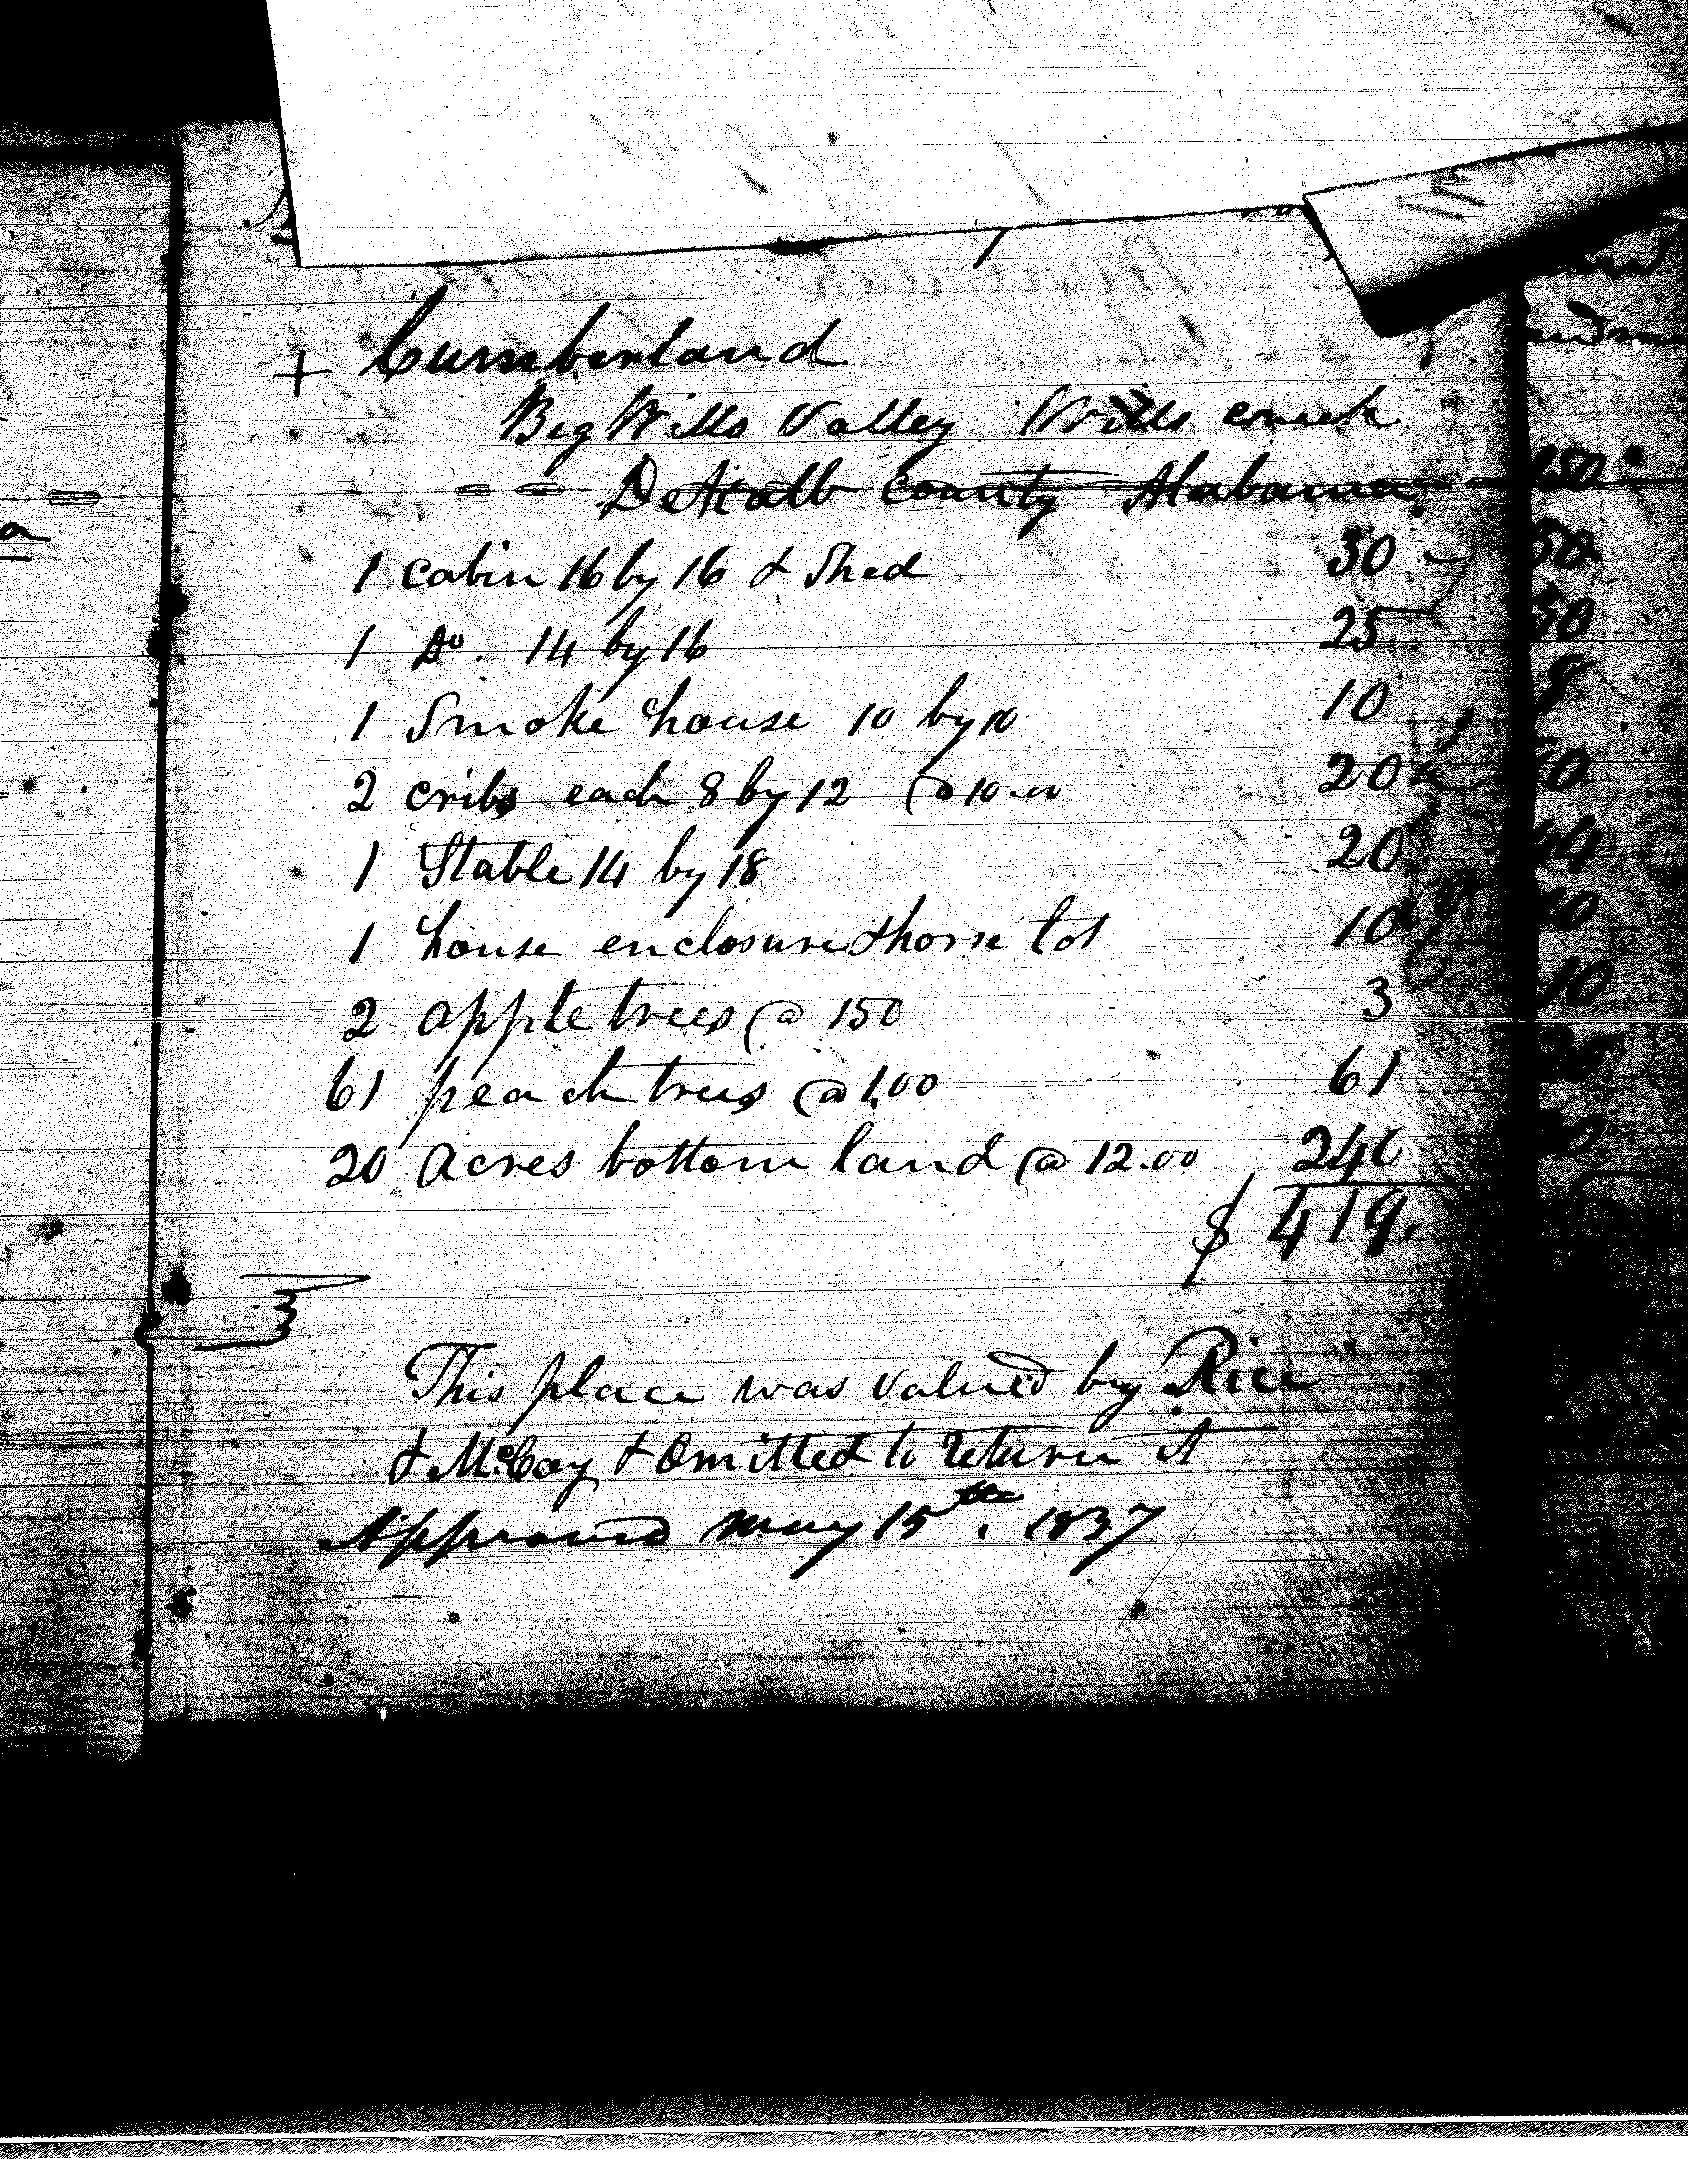 + Cumberland
Big Wills Valley Wills creek
DeKalb County Alabama
1 cabin 16 by 16 & Shed 30
1 Do. 14 by 16 25
1 Smoke house 10 by 10 10
2 cribs each 8 by 12 @ 10.00 20
1 Stable 14 by 18 20
1 house enclosure & horse lot 10
2 apple trees @ 150 3
61 peach trees @ 1.00 61
20 Acres bottom land @ 12.00 240
$ 419.
This place was valued by Rice
& McCoy & Omitted to return it
Approved may 15th. 1837